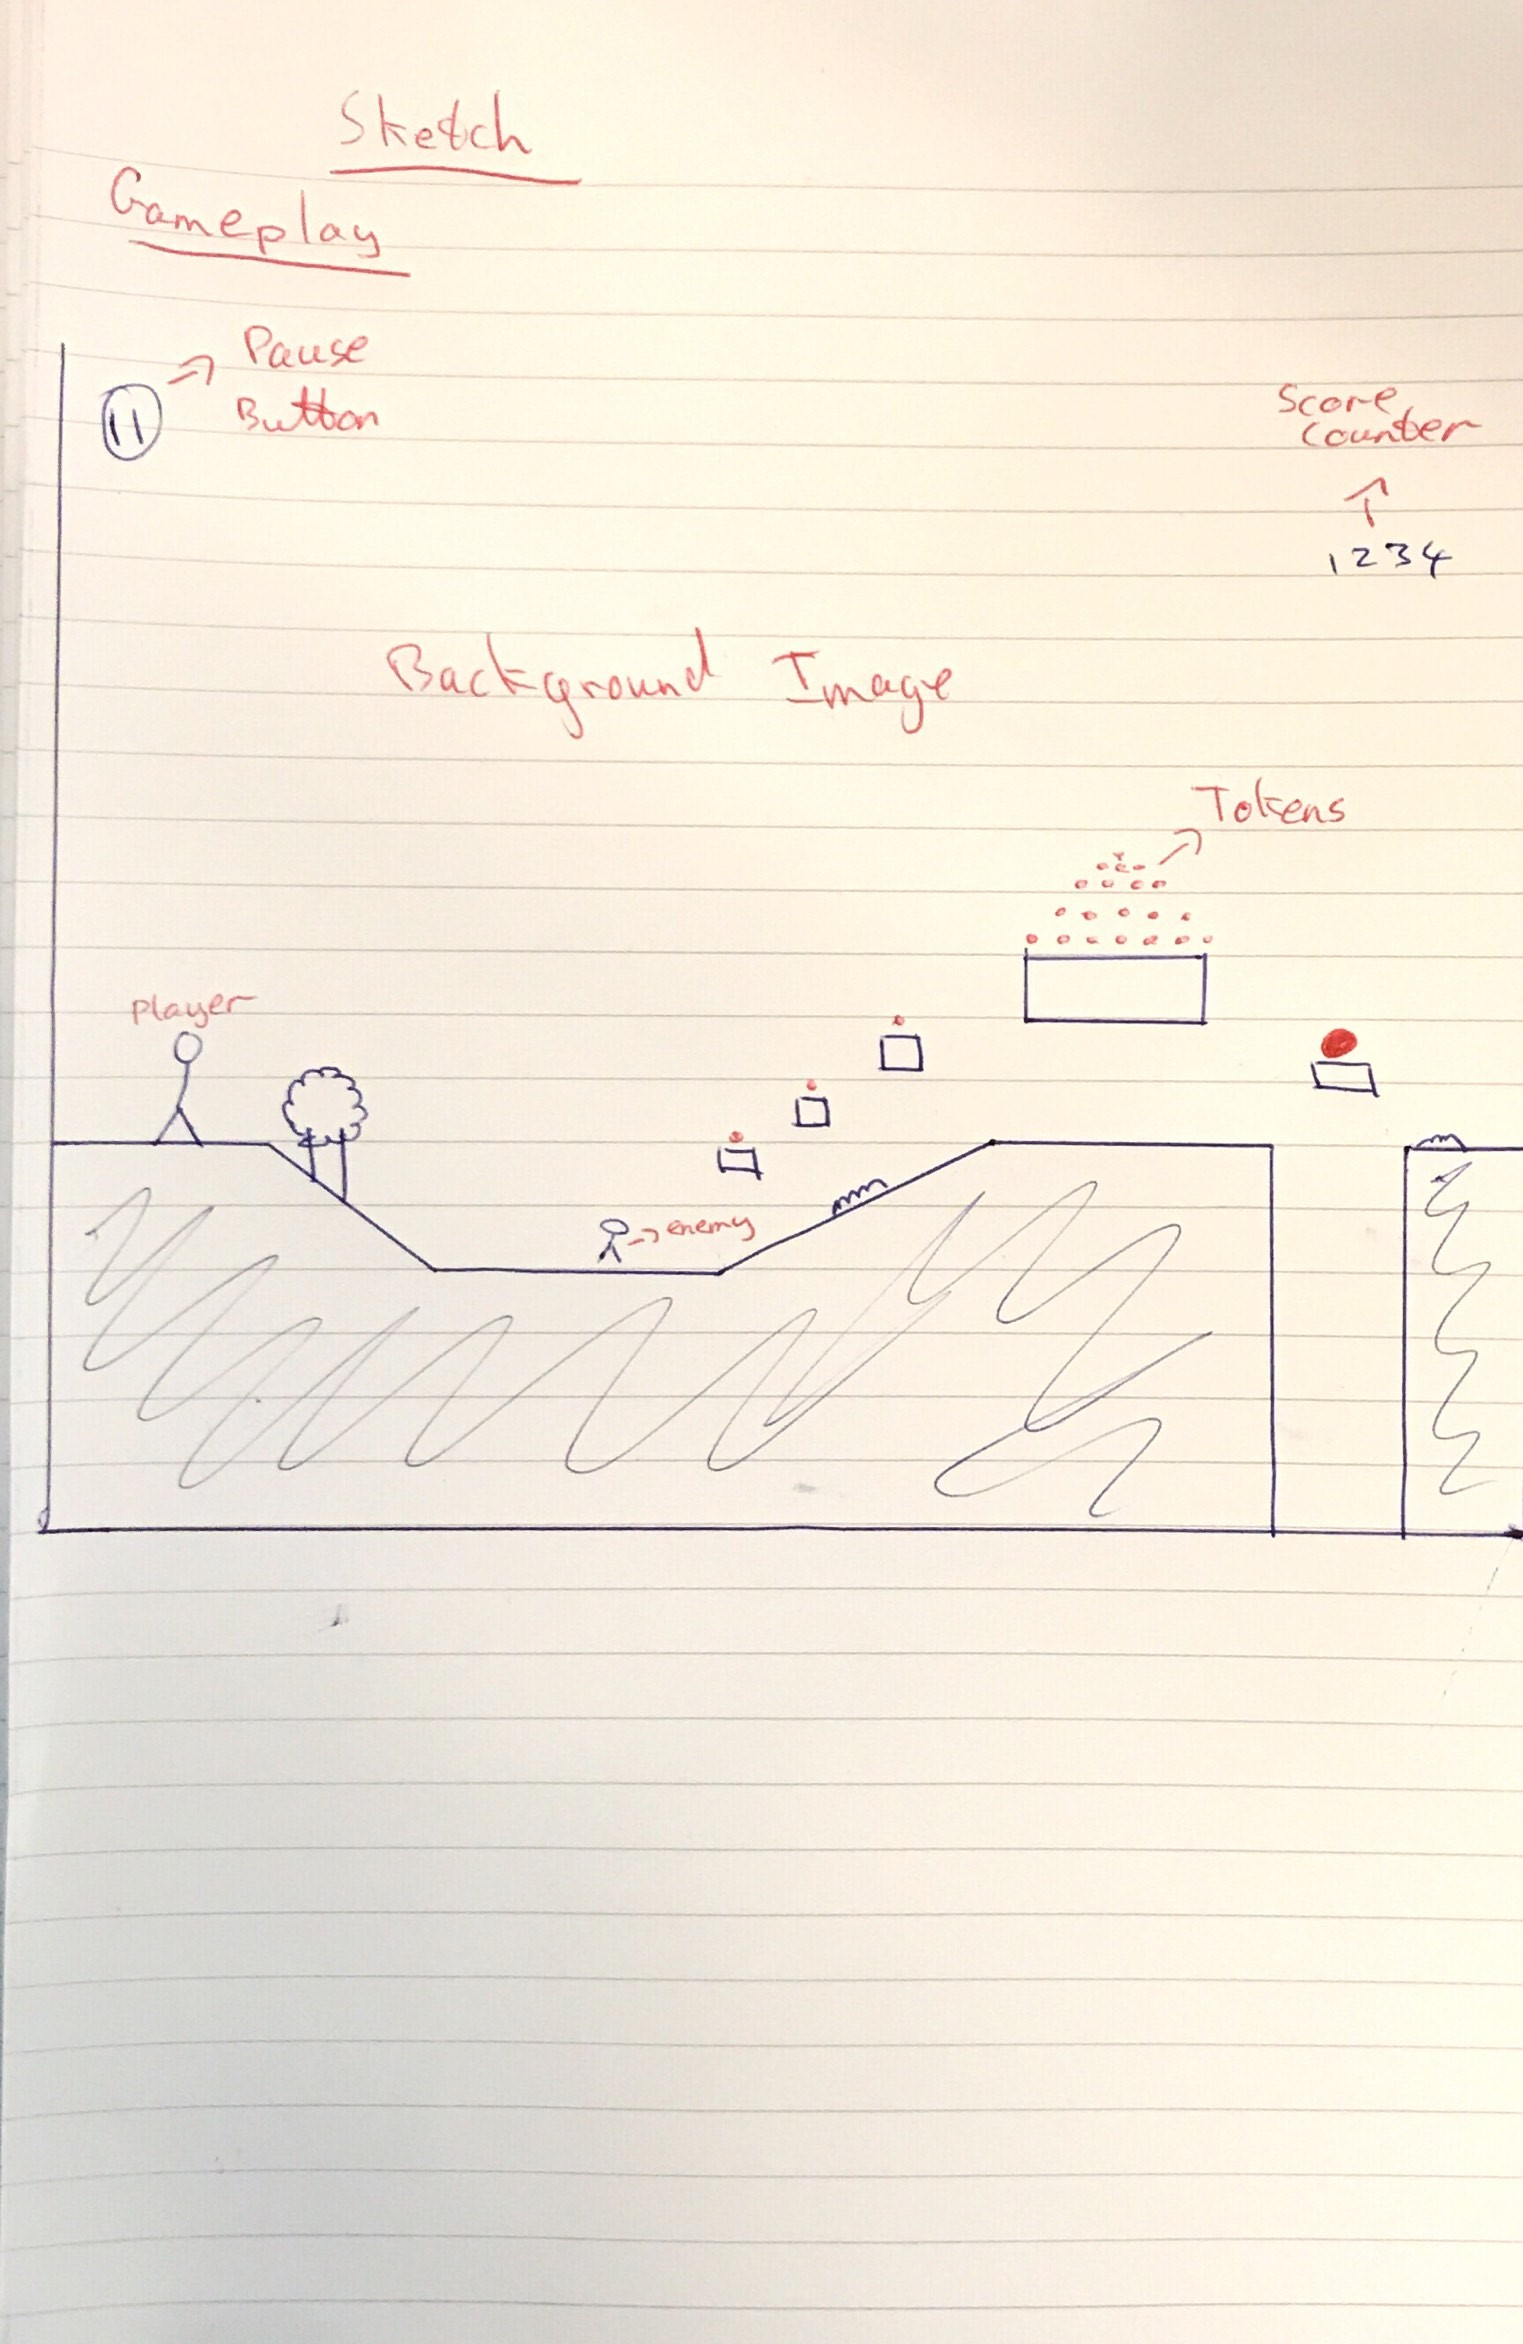 Sketch
Gameplay
Pause
Button
Score
Counter
1234
Background Image
Tokens
Player
enemy